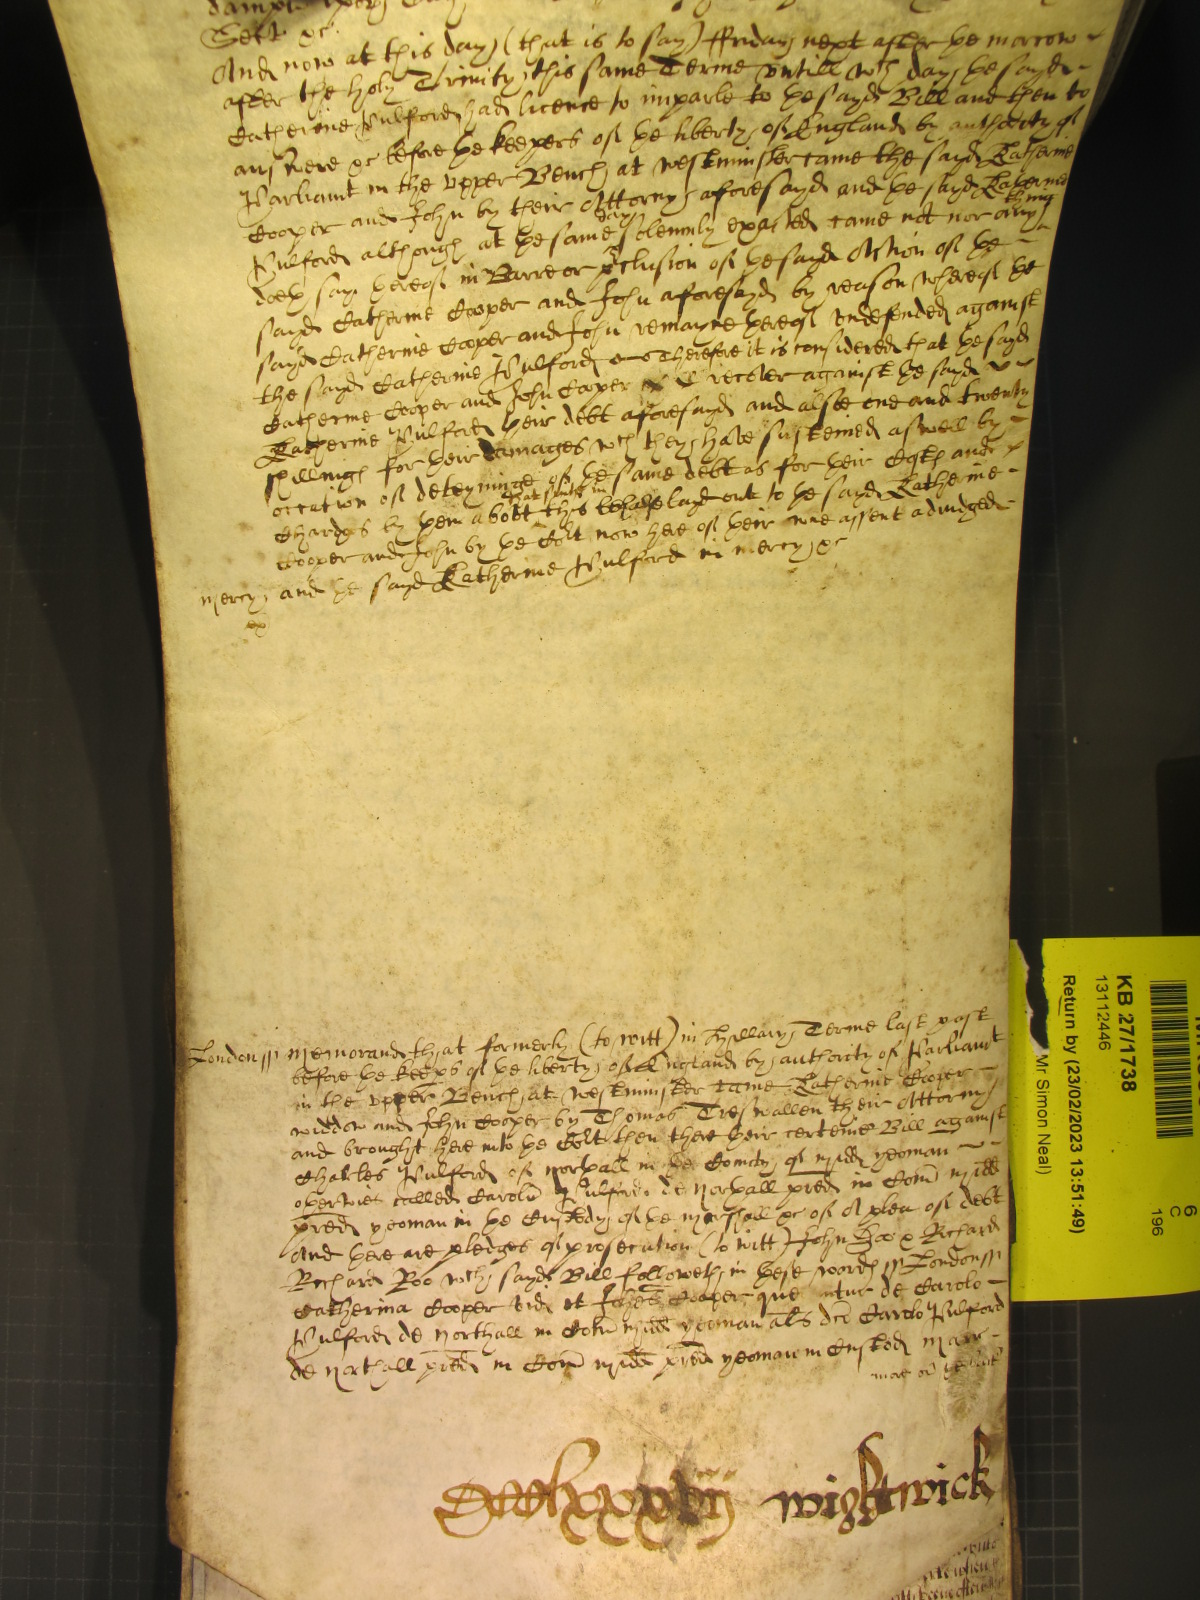 Sect &c
And now at this day (that is to say) ffriday next after ye morrow
after the holy Trinity this same Terme untill wch day ye sayd
Catherine Pulford had licence to imparle to ye sayd Bill and then to
answere &c before ye keepers of ye liberty of England by authority of
Parliamt in the upper Bench at westminster came the sayd Catherine
Cooper and John by their Attorny aforesayd and ye sayd Catherine
Pulford although at ye same day solemnly exacted came not nor any thing
doth say hereof in Barre or preclusion of ye sayd Action of ye
sayd Catherine Cooper and John aforesayd by reason whereof ye
sayd Catherine Cooper and John remayne hereof undefended against
the sayd Catherine Pulford Therefore it is considered that ye sayd
Catherine Cooper and John Cooper recover against ye sayd
Catherine Pulford their debt aforesayd and alsoe one and twenty
shillings for their damages wch they have susteined aswell by
occation of deteyninge of ye same debt as for their Costs and
Chardges by them about their suite in this behalfe layd out to ye sayd Catherine
Cooper and John by ye Cort now here of their owne assent adiudged
mercy and ye sayd Catherine Pulford in mercy &c
London ss Memorand that formerly (to witt) in Hyllary Terme last past
before ye keeps of ye liberty of England by authority of Parliamt
in the upper Bench at westminster came Catherine Cooper
widdow and John Cooper by Thomas Treswallen their Attorny
and brought here into ye Cort then there their certeine Bill against
Charles Pulford of Northall in ye County of Midd yeoman
otherwise called Carolu Pulford de Northall pred in Com Midd
pred yeoman in ye Custody of ye Marshall &c of A plea of debt
And there are pledges of prosecution (to witt) John Doo & Richard
Richard Roo wch sayd Bill followeth in these words ss London ss
Catherina Cooper vid et Johes Cooper que untur de Carolo
Pulford de Northall in Com Midd yeoman als dco Carolo Pulford
de Northall pred in Com Midd pred yeoman in Custod Marr
more on ye back
wightwick
KB 27/1738
13112446
Return by (23/02/2023 13:51:49)
Mr Simon Neal)
6
C
196